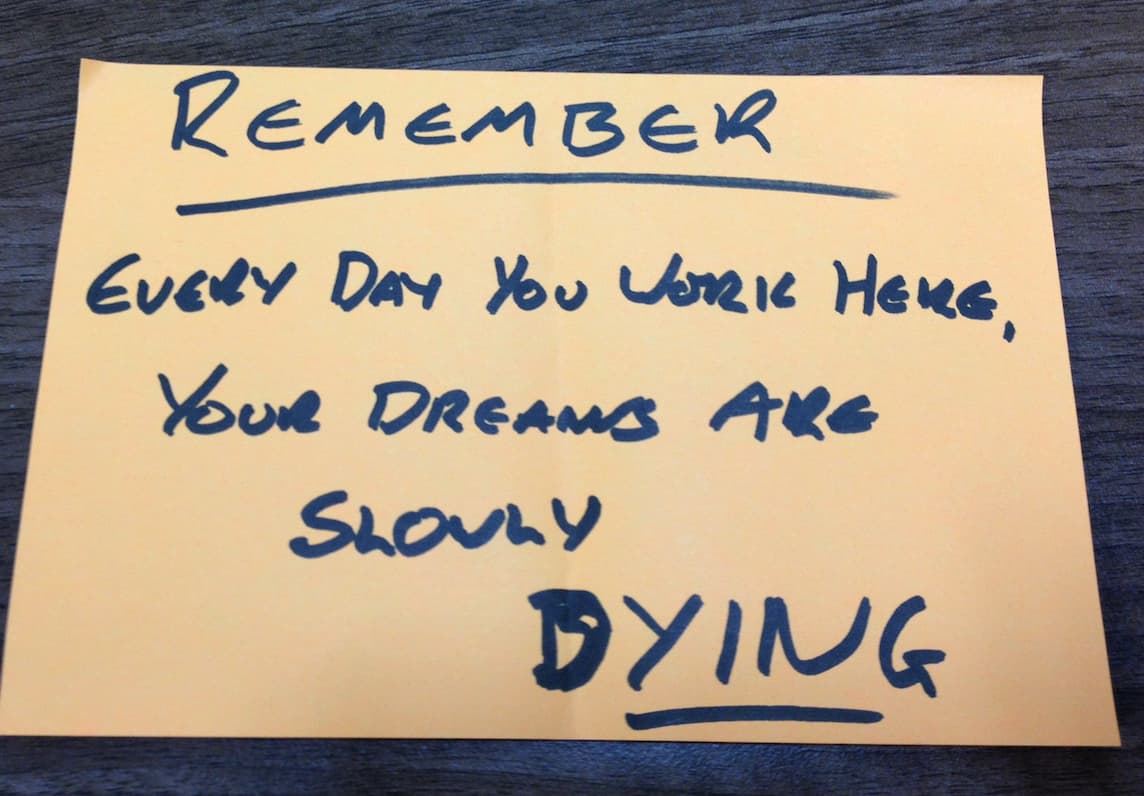 REMEMBER
EVERY DAY YOU WORK HERE,
YOUR DREAMS ARE
SLOWLY
DYING